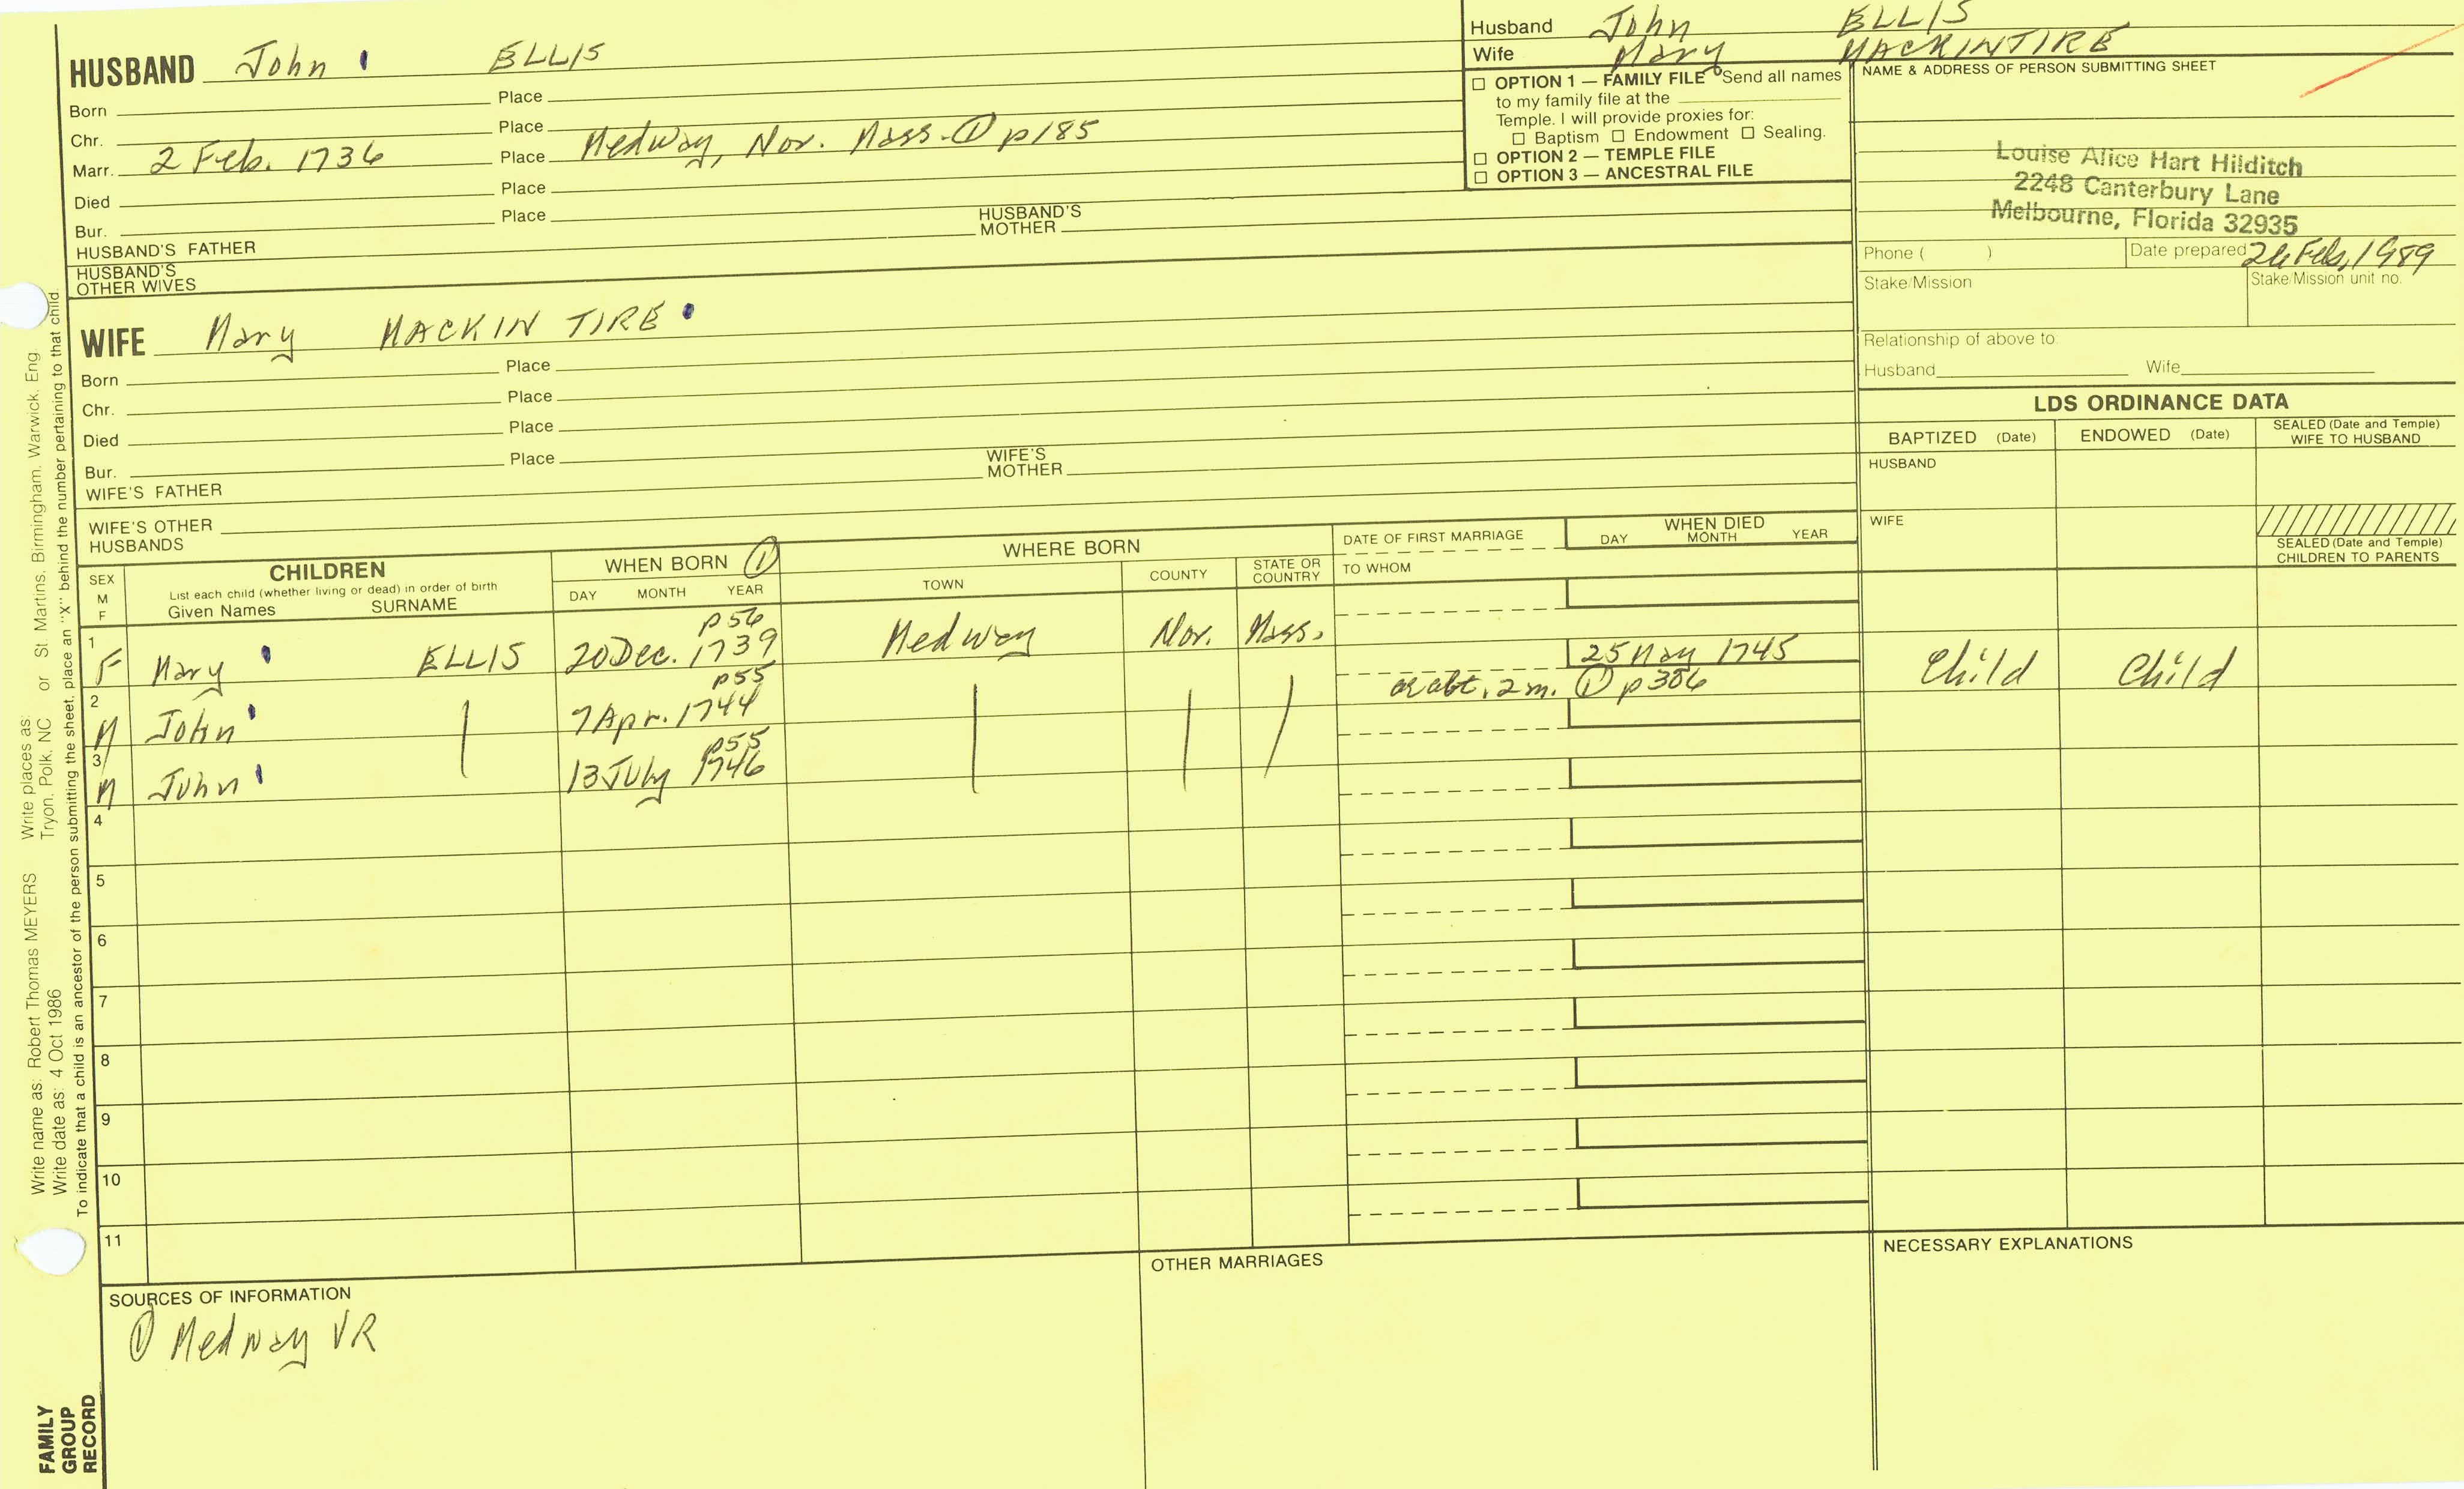 HUSBAND John ELLIS
Born Place
Chr. Place
Marr. 2 Feb. 1736 Place Medway, Nor. Mass. ① p185
Died Place
Bur. Place
HUSBAND'S FATHER HUSBAND'S MOTHER
HUSBAND'S OTHER WIVES
Husband John ELLIS
Wife Mary MACKINTIRE
☐ OPTION 1 — FAMILY FILE Send all names
to my family file at the
Temple. I will provide proxies for:
☐ Baptism ☐ Endowment ☐ Sealing.
☐ OPTION 2 — TEMPLE FILE
☐ OPTION 3 — ANCESTRAL FILE
NAME & ADDRESS OF PERSON SUBMITTING SHEET
Louise Alice Hart Hilditch
2248 Canterbury Lane
Melbourne, Florida 32935
Phone ( ) Date prepared Feb, 1989
Stake/Mission Stake/Mission unit no.
Relationship of above to:
Husband Wife
WIFE Mary MACKINTIRE
Born Place
Chr. Place
Died Place
Bur. Place
WIFE'S FATHER WIFE'S MOTHER
WIFE'S OTHER HUSBANDS
LDS ORDINANCE DATA
BAPTIZED (Date) ENDOWED (Date) SEALED (Date and Temple) WIFE TO HUSBAND
HUSBAND
WIFE
SEALED (Date and Temple) CHILDREN TO PARENTS
SEX M F
CHILDREN
List each child (whether living or dead) in order of birth
Given Names SURNAME
WHEN BORN ①
DAY MONTH YEAR
WHERE BORN
TOWN COUNTY STATE OR COUNTRY
DATE OF FIRST MARRIAGE
TO WHOM
WHEN DIED
DAY MONTH YEAR
p56
1 F Mary ELLIS 20 Dec. 1739 Medway Nor. Mass.
p55 25 May 1745
2 M John 7 Apr. 1744 abt. 2 m. ① p Child Child
p55
3 M John 13 July 1746
4
5
6
7
8
9
10
11
SOURCES OF INFORMATION
① Medway VR
OTHER MARRIAGES
NECESSARY EXPLANATIONS
FAMILY
GROUP
RECORD
Write name as: Robert Thomas MEYERS Write places as: Tryon, Polk, NC or St. Martins, Birmingham, Warwick, Eng.
Write date as: 4 Oct 1986
To indicate that a child is an ancestor of the person submitting the sheet, place an "X" behind the number pertaining to that child.